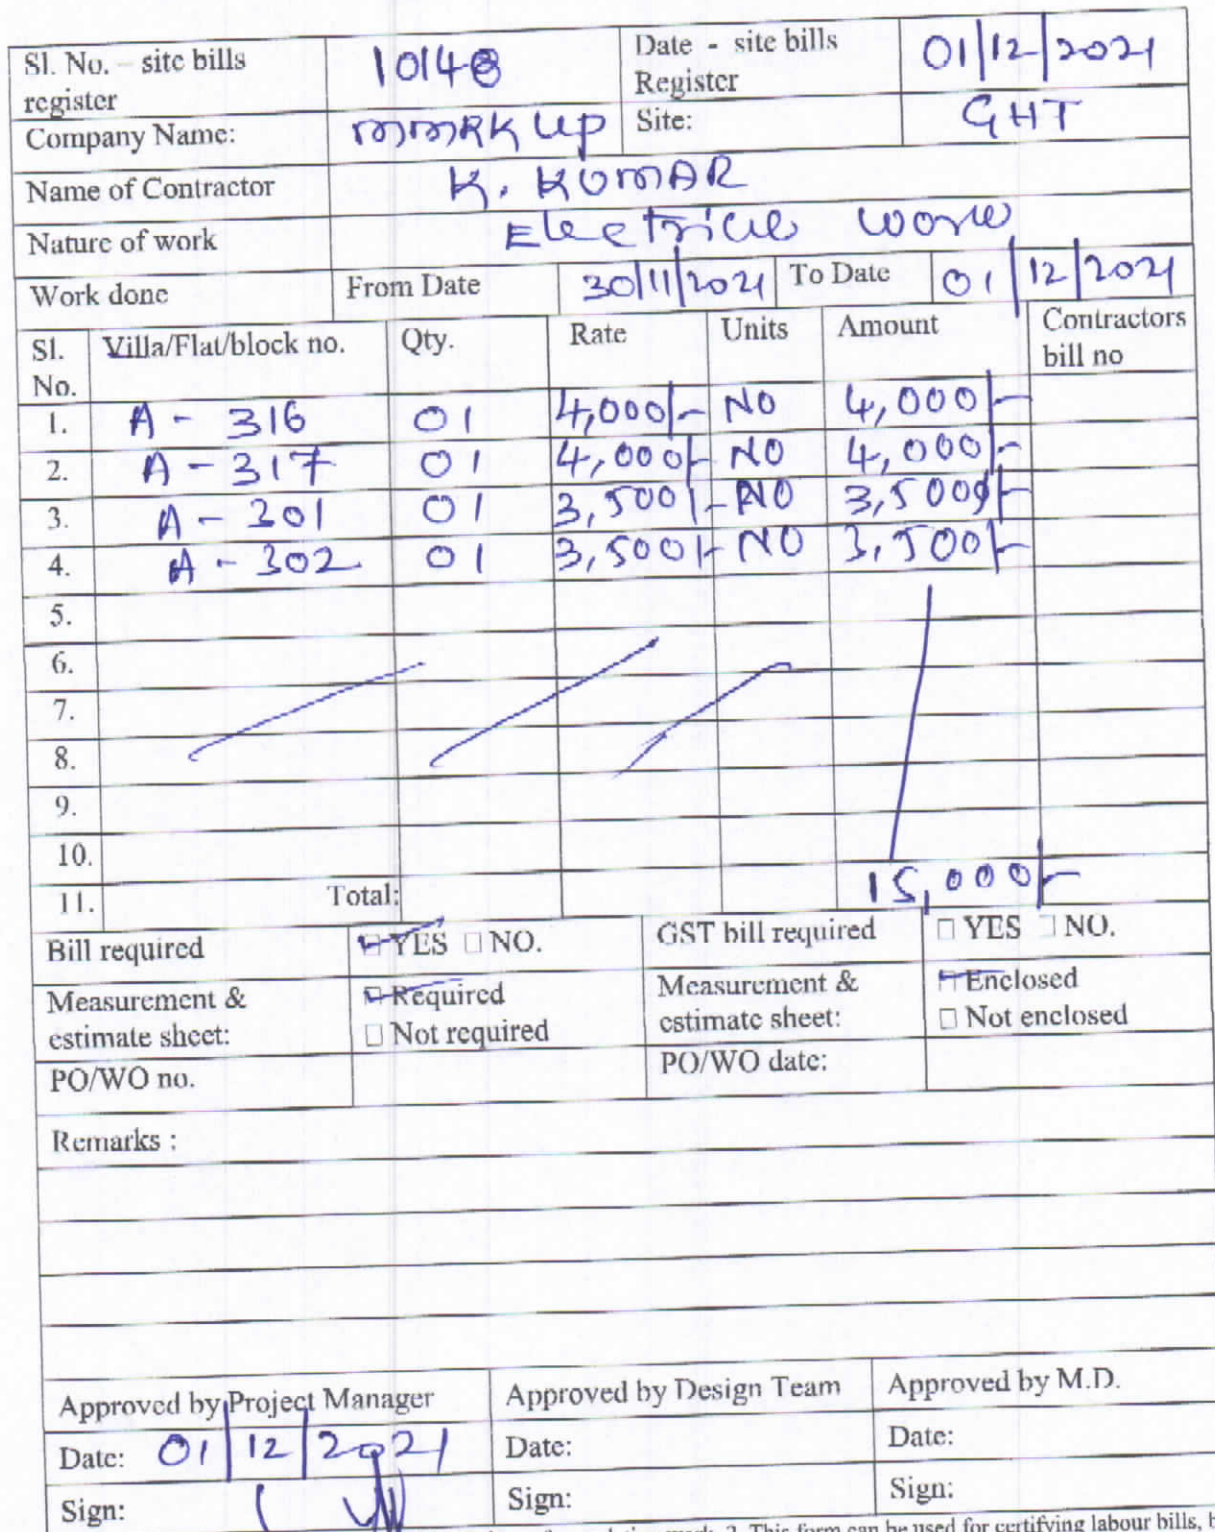 Sl. No. – site bills register 10148 Date - site bills Register 01/12/2021
Company Name: mmRK up Site: GHT
Name of Contractor K. KUMAR
Nature of work Electrical work
Work done From Date 30/11/2021 To Date 01/12/2021
Sl. No. Villa/Flat/block no. Qty. Rate Units Amount Contractors bill no
1. A - 316 01 4,000/- NO 4,000/-
2. A - 317 01 4,000/- NO 4,000/-
3. A - 301 01 3,500/- NO 3,500/-
4. A - 302 01 3,500/- NO 3,500/-
5.
6.
7.
8.
9.
10.
11. Total: 15,000/-
Bill required ☑ YES ☐ NO. GST bill required ☐ YES ☐ NO.
Measurement & estimate sheet: ☑ Required ☐ Not required Measurement & estimate sheet: ☑ Enclosed ☐ Not enclosed
PO/WO no. PO/WO date:
Remarks :
Approved by Project Manager Approved by Design Team Approved by M.D.
Date: 01/12/2021 Date: Date:
Sign: Sign: Sign:
2. This form can be used for certifying labour bills,